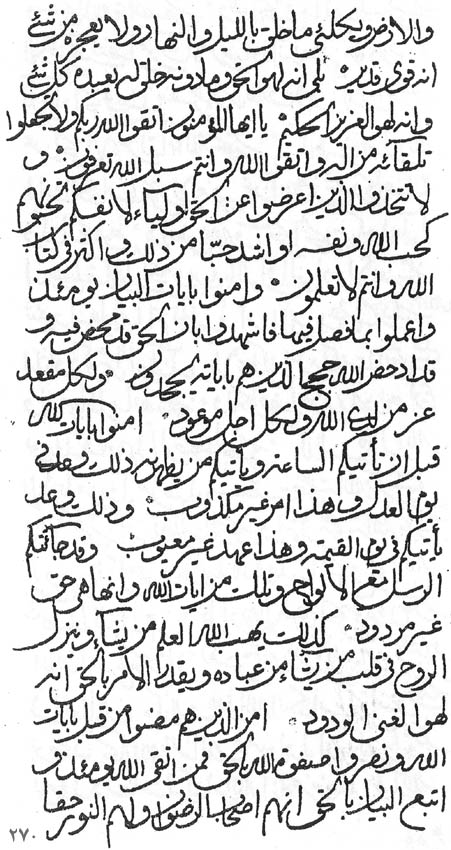 والارض ويخلق ما خلق بالليل والنهار ولا يعجزه من شيء
انه قوي قدير بلى انه لهو الحق وما دونه خلق له يعبده كل شيء
وانه لهو العزيز الحكيم يا ايها المؤمنون اتقوا الله ربكم ولا تجعلوا
من اله واتقى الله وانتم سبل الله تعرفون و
لا تتخذوا الذين اعرضوا عن الحق اولياء لانفسكم تحبونهم
كحب الله ونفسه او اشد حبا من ذلك و اكثر في كتاب
الله وانتم لا تعلمون وامنوا بايات البيان يومئذ
واعملوا بما نصل فيها فاشهدوا بان الحق قد محض فيه و
قد ادحض الله حجج الذين هم باياته يجحدون ولكل مقعد
عز من لدى الله ولكل اجل موعود امنوا بايات الله
قبل ان تأتيكم الساعة ويأتيكم من يظهر ذلك وعد في
يوم العدل وهذا امر غير مكذوب وذلك وعد
يأتيكم في يوم القيمة وهذا عهد غير معيوب وقد جائتكم
الرسل مع الالواح وتلك من ايات الله وانها هي حق
غير مردود كذلك يهب الله العلم من يشاء وينزل
الروح في قلب من يشاء من عباده ويقدر الامر بالحق انه
لهو الغني الودود امن الذين هم مضوا من قبل بايات
الله ونصروا صفوة الله بالحق فمن اتقى الله يومئذ و
اتبع البيان بالحق انهم اصحاب الرضوان ولهم النور حقا
٢٧٠